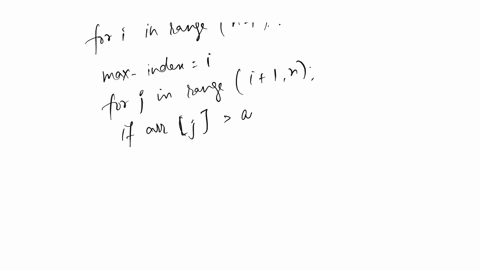 for i in range (n-1):
max-index = i
for j in range (i+1, n);
if arr [j] > a